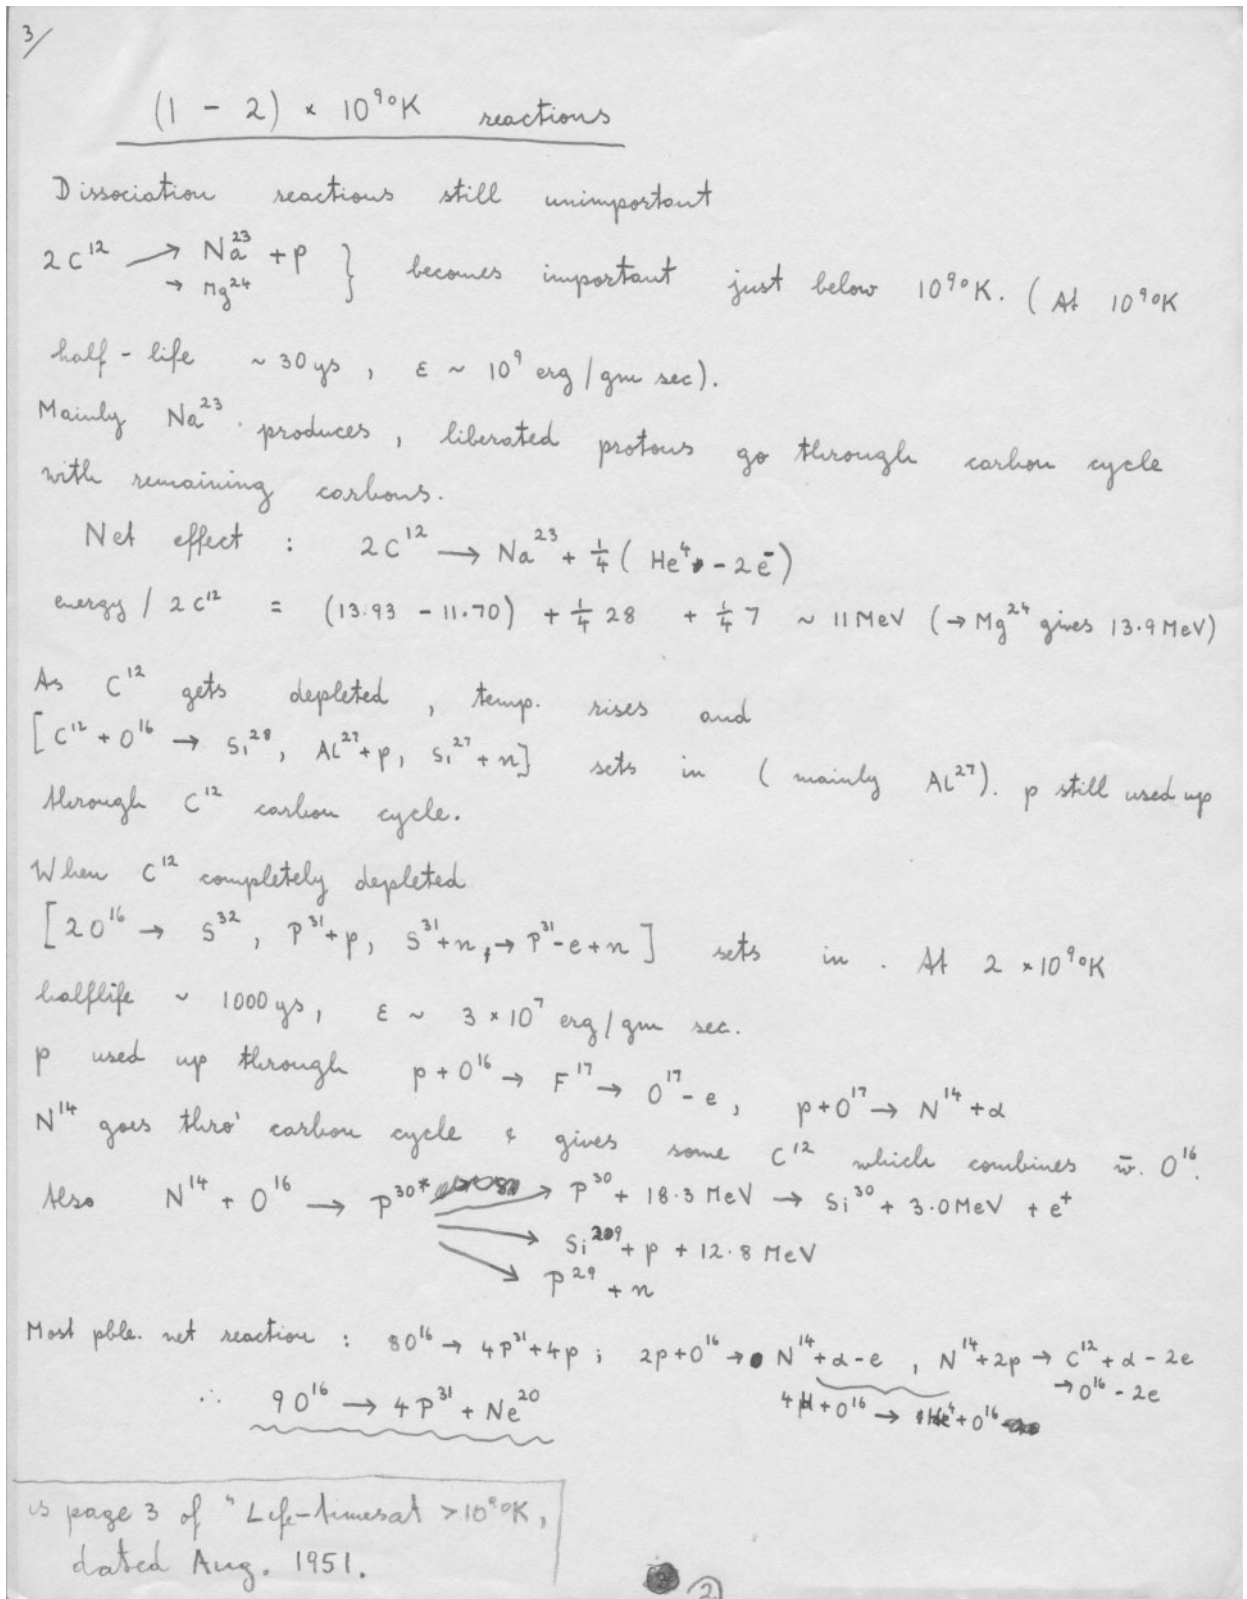 3/
(1 - 2) × 10⁹°K reactions
Dissociation reactions still unimportant
2C¹² → Na²³ + p } becomes important just below 10⁹°K. (At 10⁹°K
→ Mg²⁴
half-life ~ 30 ys, ε ~ 10⁹ erg/gm sec).
Mainly Na²³ produces, liberated protons go through carbon cycle
with remaining carbons.
Net effect : 2C¹² → Na²³ + ¼ ( He⁴ - 2e⁻)
energy / 2C¹² = (13.93 - 11.70) + ¼ 28 + ¼ 7 ~ 11 MeV (→ Mg²⁴ gives 13.9 MeV)
As C¹² gets depleted, temp. rises and
[C¹² + O¹⁶ → Si²⁸, Al²⁷+p, Si²⁷+n] sets in (mainly Al²⁷). p still used up
through C¹² carbon cycle.
When C¹² completely depleted
[2O¹⁶ → S³², P³¹+p, S³¹+n, → P³¹-e+n] sets in. At 2 × 10⁹°K
halflife ~ 1000 ys, ε ~ 3 × 10⁷ erg/gm sec.
p used up through p + O¹⁶ → F¹⁷ → O¹⁷ - e, p + O¹⁷ → N¹⁴ + α
N¹⁴ goes thro' carbon cycle & gives some C¹² which combines w. O¹⁶.
Also N¹⁴ + O¹⁶ → P³⁰* → P³⁰ + 18.3 MeV → Si³⁰ + 3.0 MeV + e⁺
→ Si²⁹ + p + 12.8 MeV
→ P²⁹ + n
Most pble. net reaction : 8O¹⁶ → 4P³¹+4p ; 2p+O¹⁶ → N¹⁴+α-e, N¹⁴+2p → C¹²+α-2e
→ O¹⁶-2e
∴ 9O¹⁶ → 4P³¹ + Ne²⁰
4H+O¹⁶ → He⁴+O¹⁶
is page 3 of "Life-times at > 10⁹°K,
dated Aug. 1951.
2